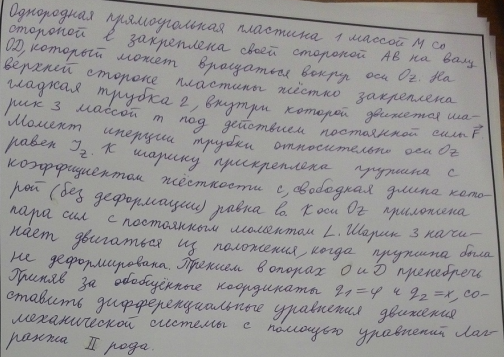 Однородная прямоугольная пластина 1 массой M со
стороной ℓ закреплена своей стороной AB на валу
OD, который может вращаться вокруг оси Oz. На
верхней стороне пластины жёстко закреплена
гладкая трубка 2, внутри которой движется ша-
рик 3 массой m под действием постоянной силы F.
Момент инерции трубки относительно оси Oz
равен Jz. К шарику прикреплена пружина с
коэффициентом жёсткости с, свободная длина кото-
рой (без деформации) равна l₀. К оси Oz приложена
пара сил с постоянным моментом L. Шарик 3 начи-
нает двигаться из положения, когда пружина была
не деформирована. Трением в опорах O и D пренебречь
Приняв за обобщённые координаты q1=φ и q2=x, со-
ставить дифференциальные уравнения движения
механической системы с помощью уравнений Лаг-
ранжа II рода.